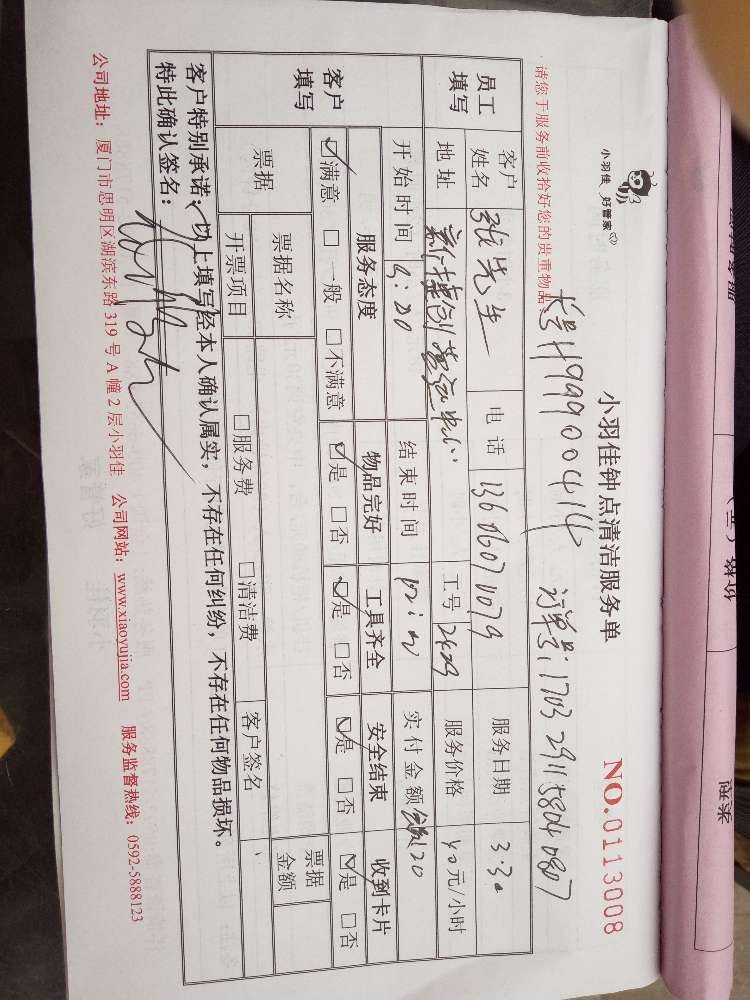 小羽佳 好管家
小羽佳钟点清洁服务单
NO.0113008
订单号:1703291158040807
请您于服务前收拾好您的贵重物品
员工填写
客户姓名 张先生 电话 13606070079 服务日期 3.30
地址 工号 2429 服务价格 40元/小时
开始时间 9:00 结束时间 实付金额
客户填写
服务态度 物品完好 工具齐全 安全结束 收到卡片
☑满意 □一般 □不满意 ☑是 □否 ☑是 □否 ☑是 □否 ☑是 □否
票据 票据名称 票据金额
开票项目 □服务费 □清洁费 客户签名
客户特别承诺:以上填写经本人确认属实,不存在任何纠纷,不存在任何物品损坏。
特此确认签名:
公司地址:厦门市思明区湖滨东路319号A幢2层小羽佳 公司网站:www.xiaoyujia.com 服务监督热线:0592-5888123